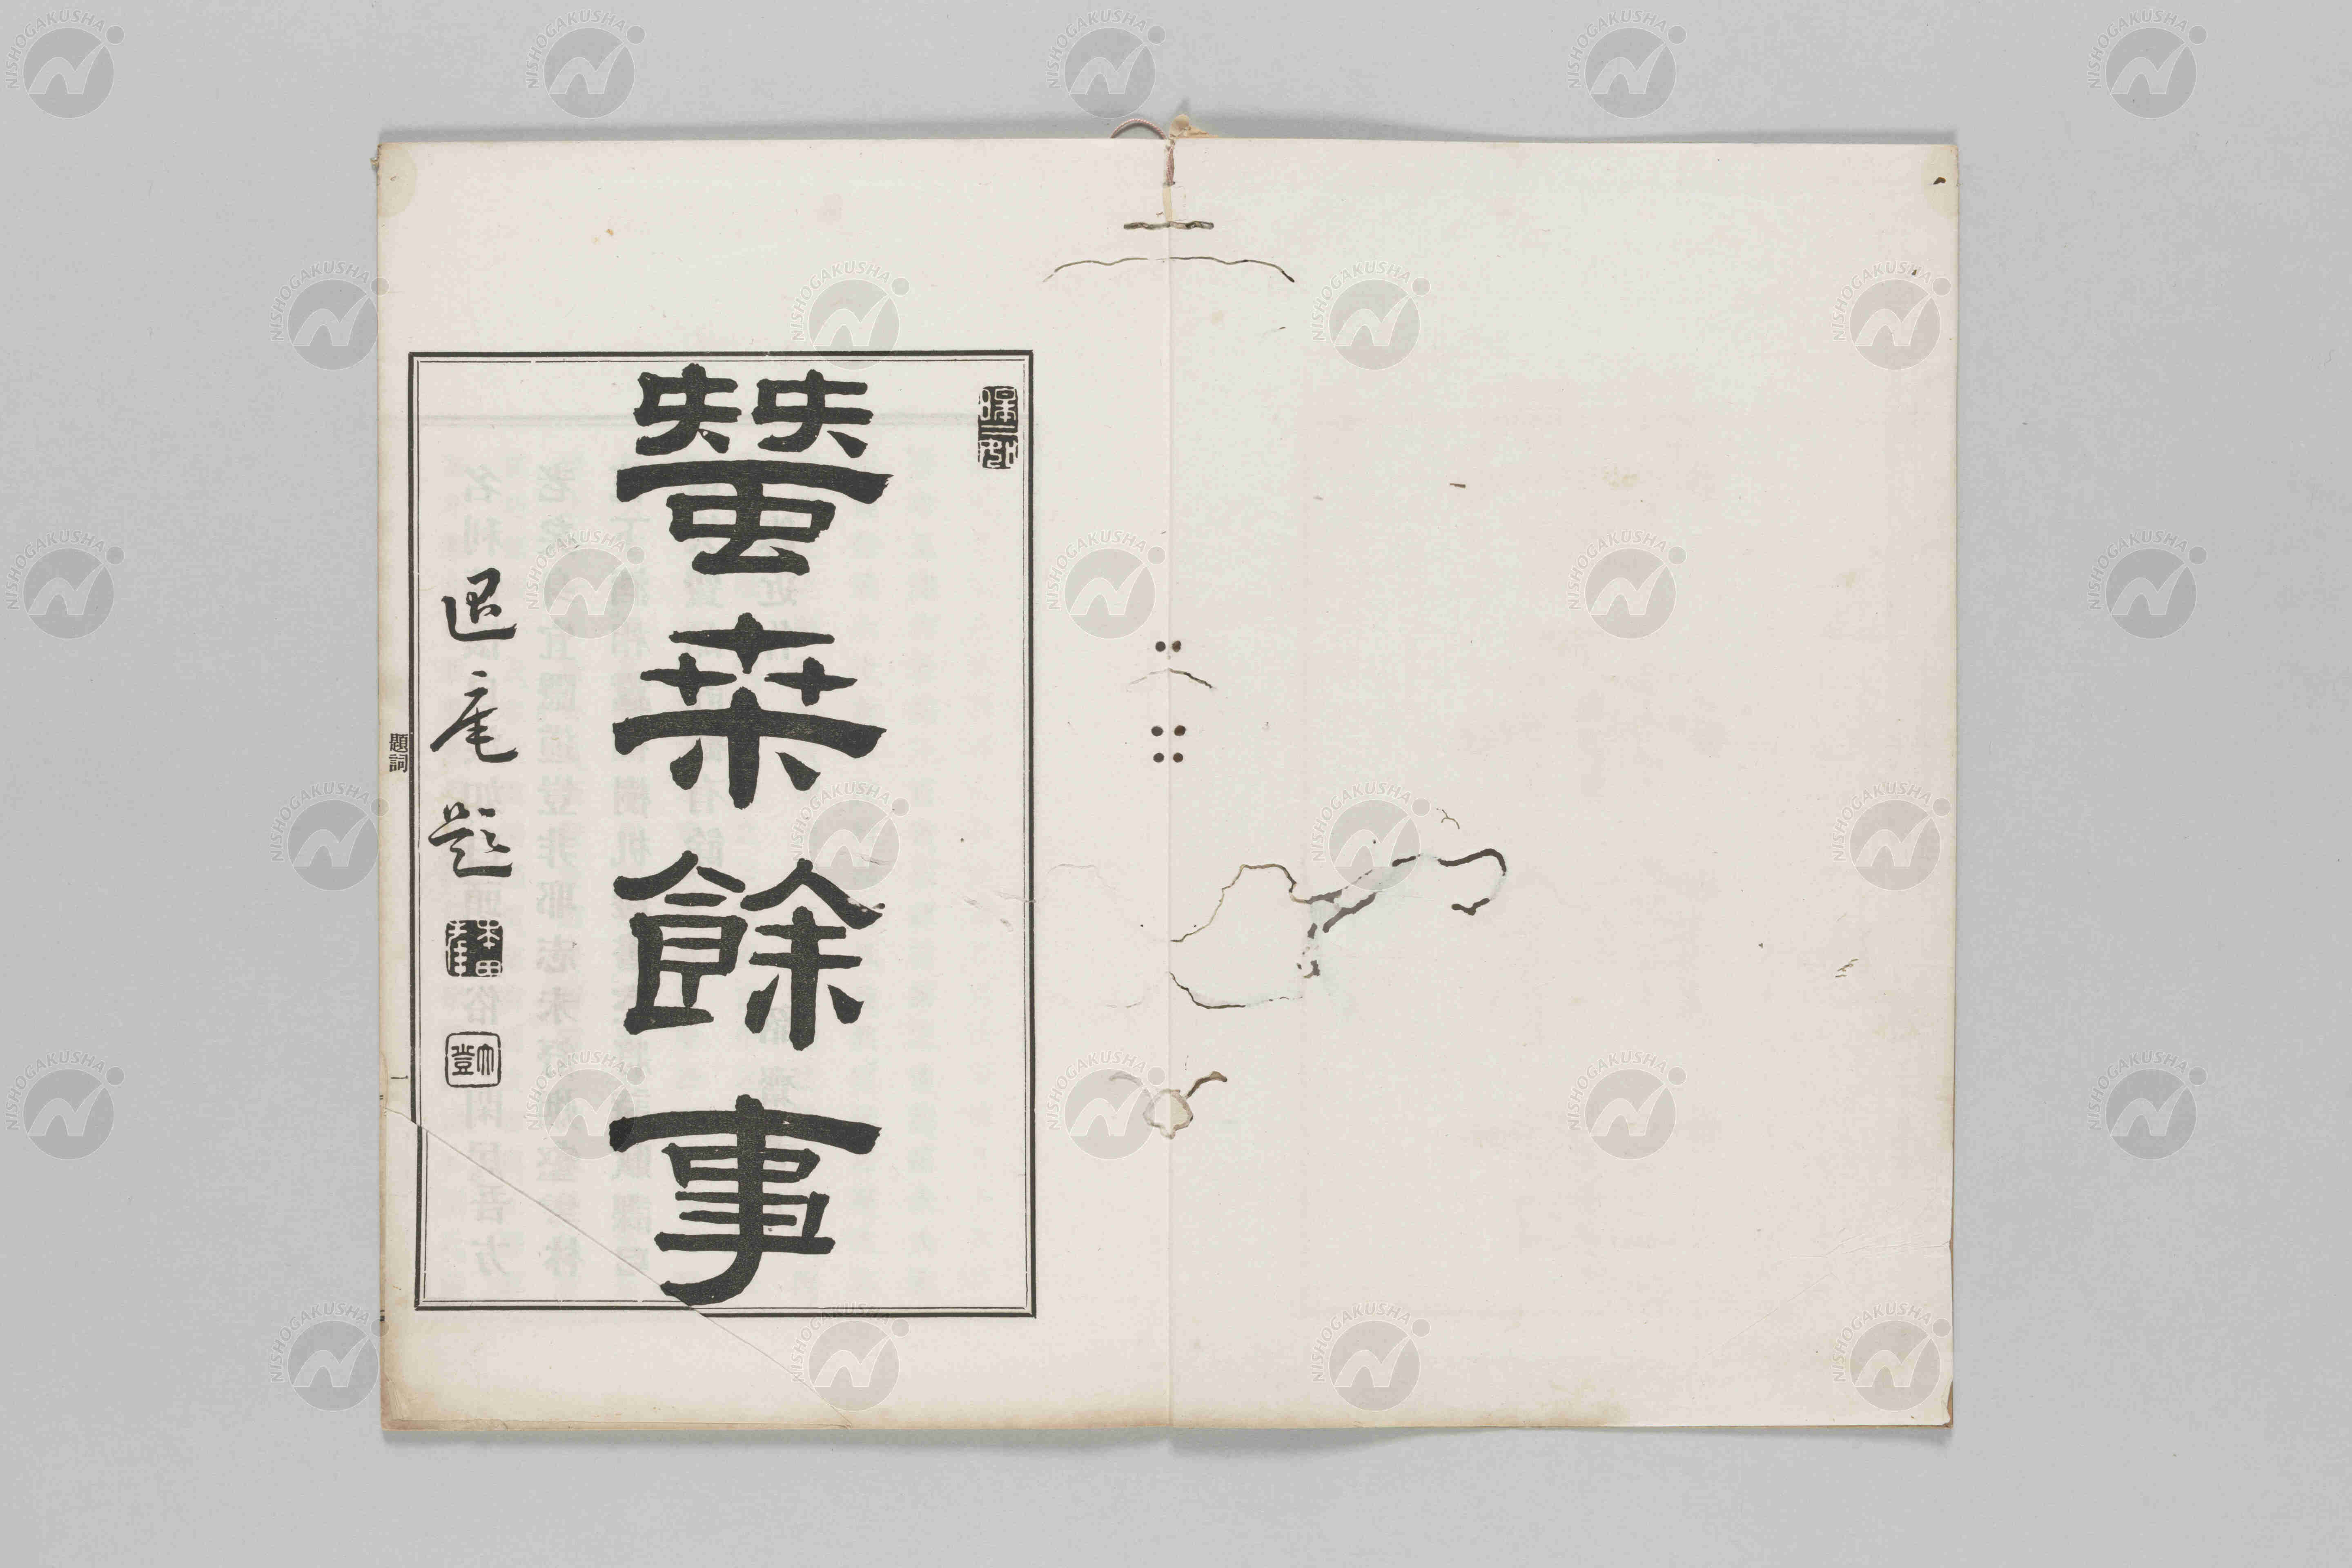 蠶桒餘事
退庵題
題詞
一
NISHOGAKUSHA